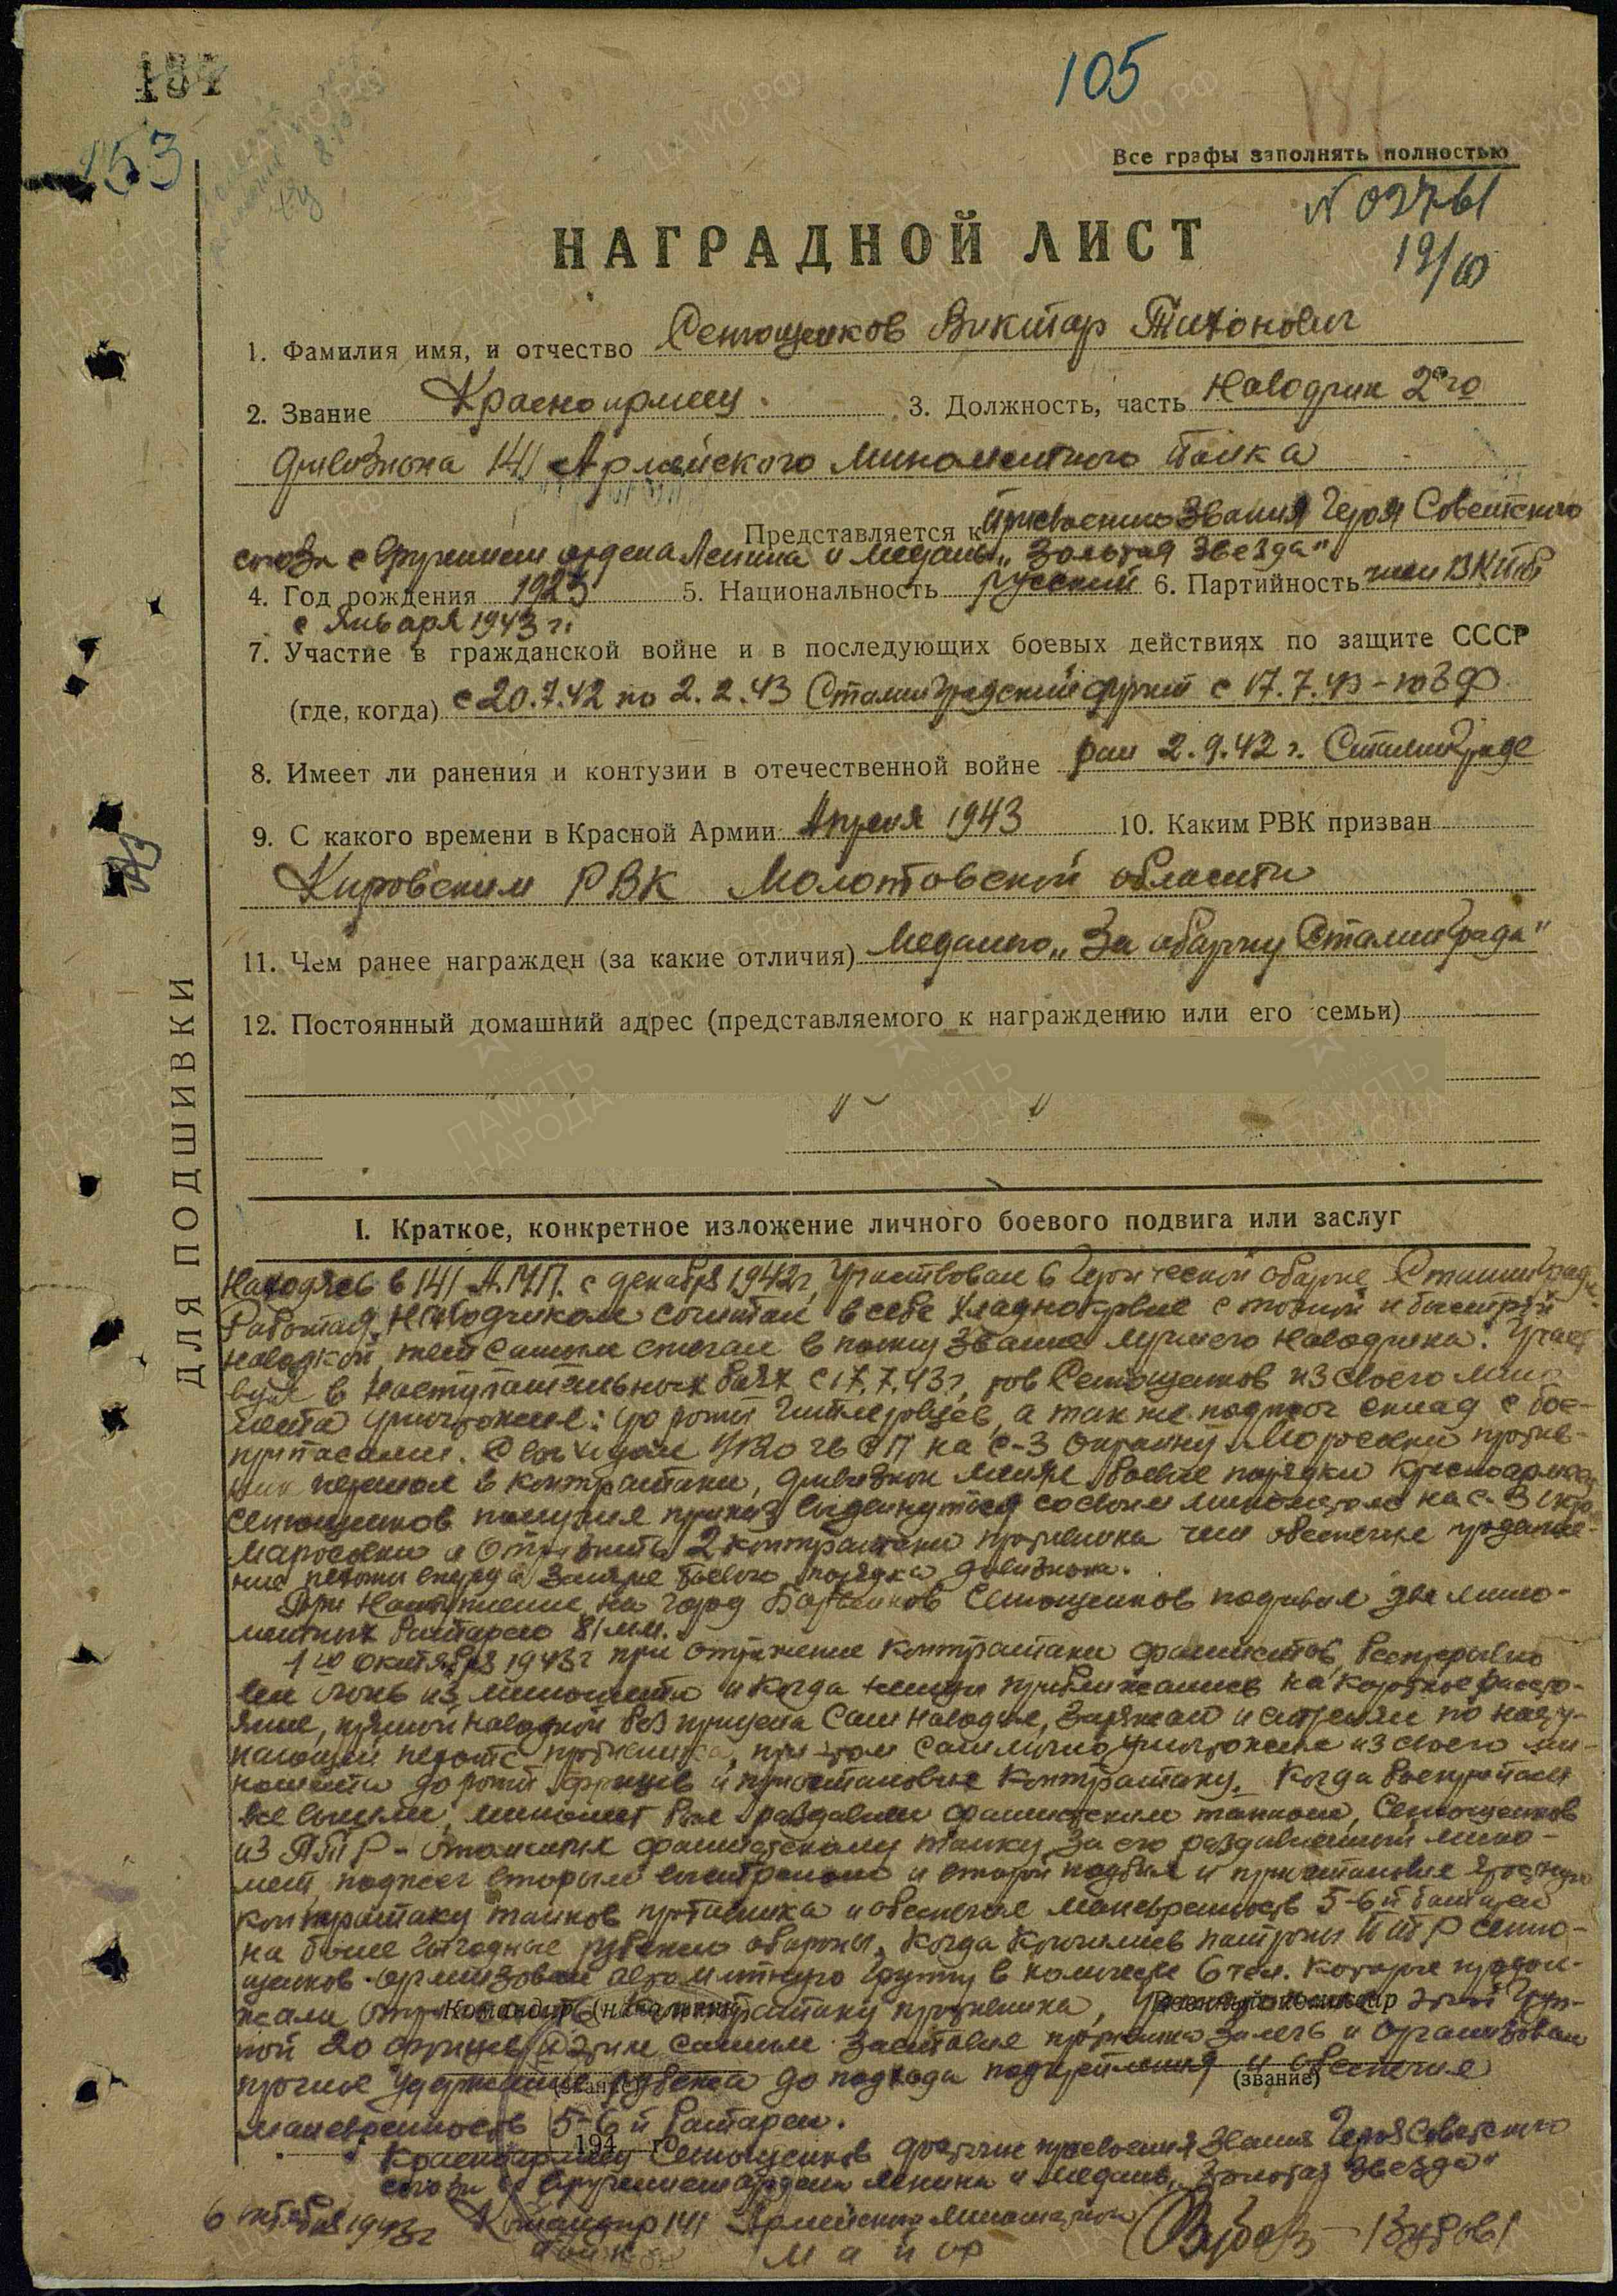 134
105
137
153
Все графы заполнять полностью
N 03761
19/10
НАГРАДНОЙ ЛИСТ
1. Фамилия имя, и отчество Сентощенков Виктар Тихонович
2. Звание Красноармеец. 3. Должность, часть Наводчик 2го
дивизиона 141 Армейского минометного полка
Представляется к присвоению звания Героя Советского
союза с вручением ордена Ленина и медаль „Золотая Звезда"
4. Год рождения 1923 5. Национальность русский 6. Партийность член ВКП(б)
с Января 1943 г.
7. Участие в гражданской войне и в последующих боевых действиях по защите СССР
(где, когда) с 20.7.42 по 2.2.43 Сталинградский фронт с 17.7.43 - ЮЗФ
8. Имеет ли ранения и контузии в отечественной войне ран 2.9.42 г. Сталинграде
9. С какого времени в Красной Армии Апреля 1943 10. Каким РВК призван
Кировским РВК Молотовской области
11. Чем ранее награжден (за какие отличия) Медалью „За оборону Сталинграда"
12. Постоянный домашний адрес (представляемого к награждению или его семьи)
ДЛЯ ПОДШИВКИ
I. Краткое, конкретное изложение личного боевого подвига или заслуг
Находясь в 141 А.М.П. с декабря 1942г, участвовал в Героической обороне Сталинграда.
Работая наводчиком сочитал в себе хладнокровие с точной и быстрой
наводкой, тем самым снискал звание лучшего наводчика. Участ
вуя в наступательных боях с 17.7.43г, тов Сентощенков из своего мино
мета уничтожил: до роты Гитлеровцев, а также поджог склад с бое-
припасами. С выходом гв СП на с-з окраину Моросовки против-
ник перешел в контратаки, дивизион менял боевые порядки Красноармеец
Сентощенков получил приказ выдвинуться со своим минометом на с-з окр.
Маросовки и отразить 2 контратаки противника чем обеспечил продвиже-
ние пехоты вперед и занятие боевого порядка дивизиона.
При наступление на город Барвенков Сентощенков подавил две мино-
метных батареи 81 мм.
1го октября 1943г при отражение контратаки фашистов, беспрерывно
вел огонь из миномета и когда немцы приближались на короткое расто-
яние, прямой наводкой без прицела сам наводил, заряжал и стрелял по насту-
пающей пехоте противника, при этом сам лично уничтожил из своего ми-
номета до роты фрицев и приостановил контратаку. Когда
все вышли, миномет был раздавлен фашистским танком, Сентощенков
из ПТР - отомстил фашистскому танку за его раздавленный мино-
мет, поджег вторым выстрелом и второй подбил и приостановил
контратаку танков противника и обеспечил маневренность 5-6й батарей
на более выгодные рубежи обороны. Когда кончились патроны ПТР Сенто-
щенков организовал автоматную группу в количестве 6 чел. которые продол-
жали отражать контратаку противника, уничтожив этой груп-
Командир (начальник) Военный комиссар
пой 20 фрицев и этим самым заставил противника залечь и организовал
прочное удержание рубежа до подхода подкрепления и обеспечил
(звание) (звание)
маневренность 5-6й батареи.
194 г.
Красноармеец Сентощенков достоин присвоения звания Героя Советского
союза с вручением ордена Ленина и медаль „Золотая Звезда"
6 октября 1943г Командир 141 Армейского минометного
полка Майор Зубов - /Зубов/